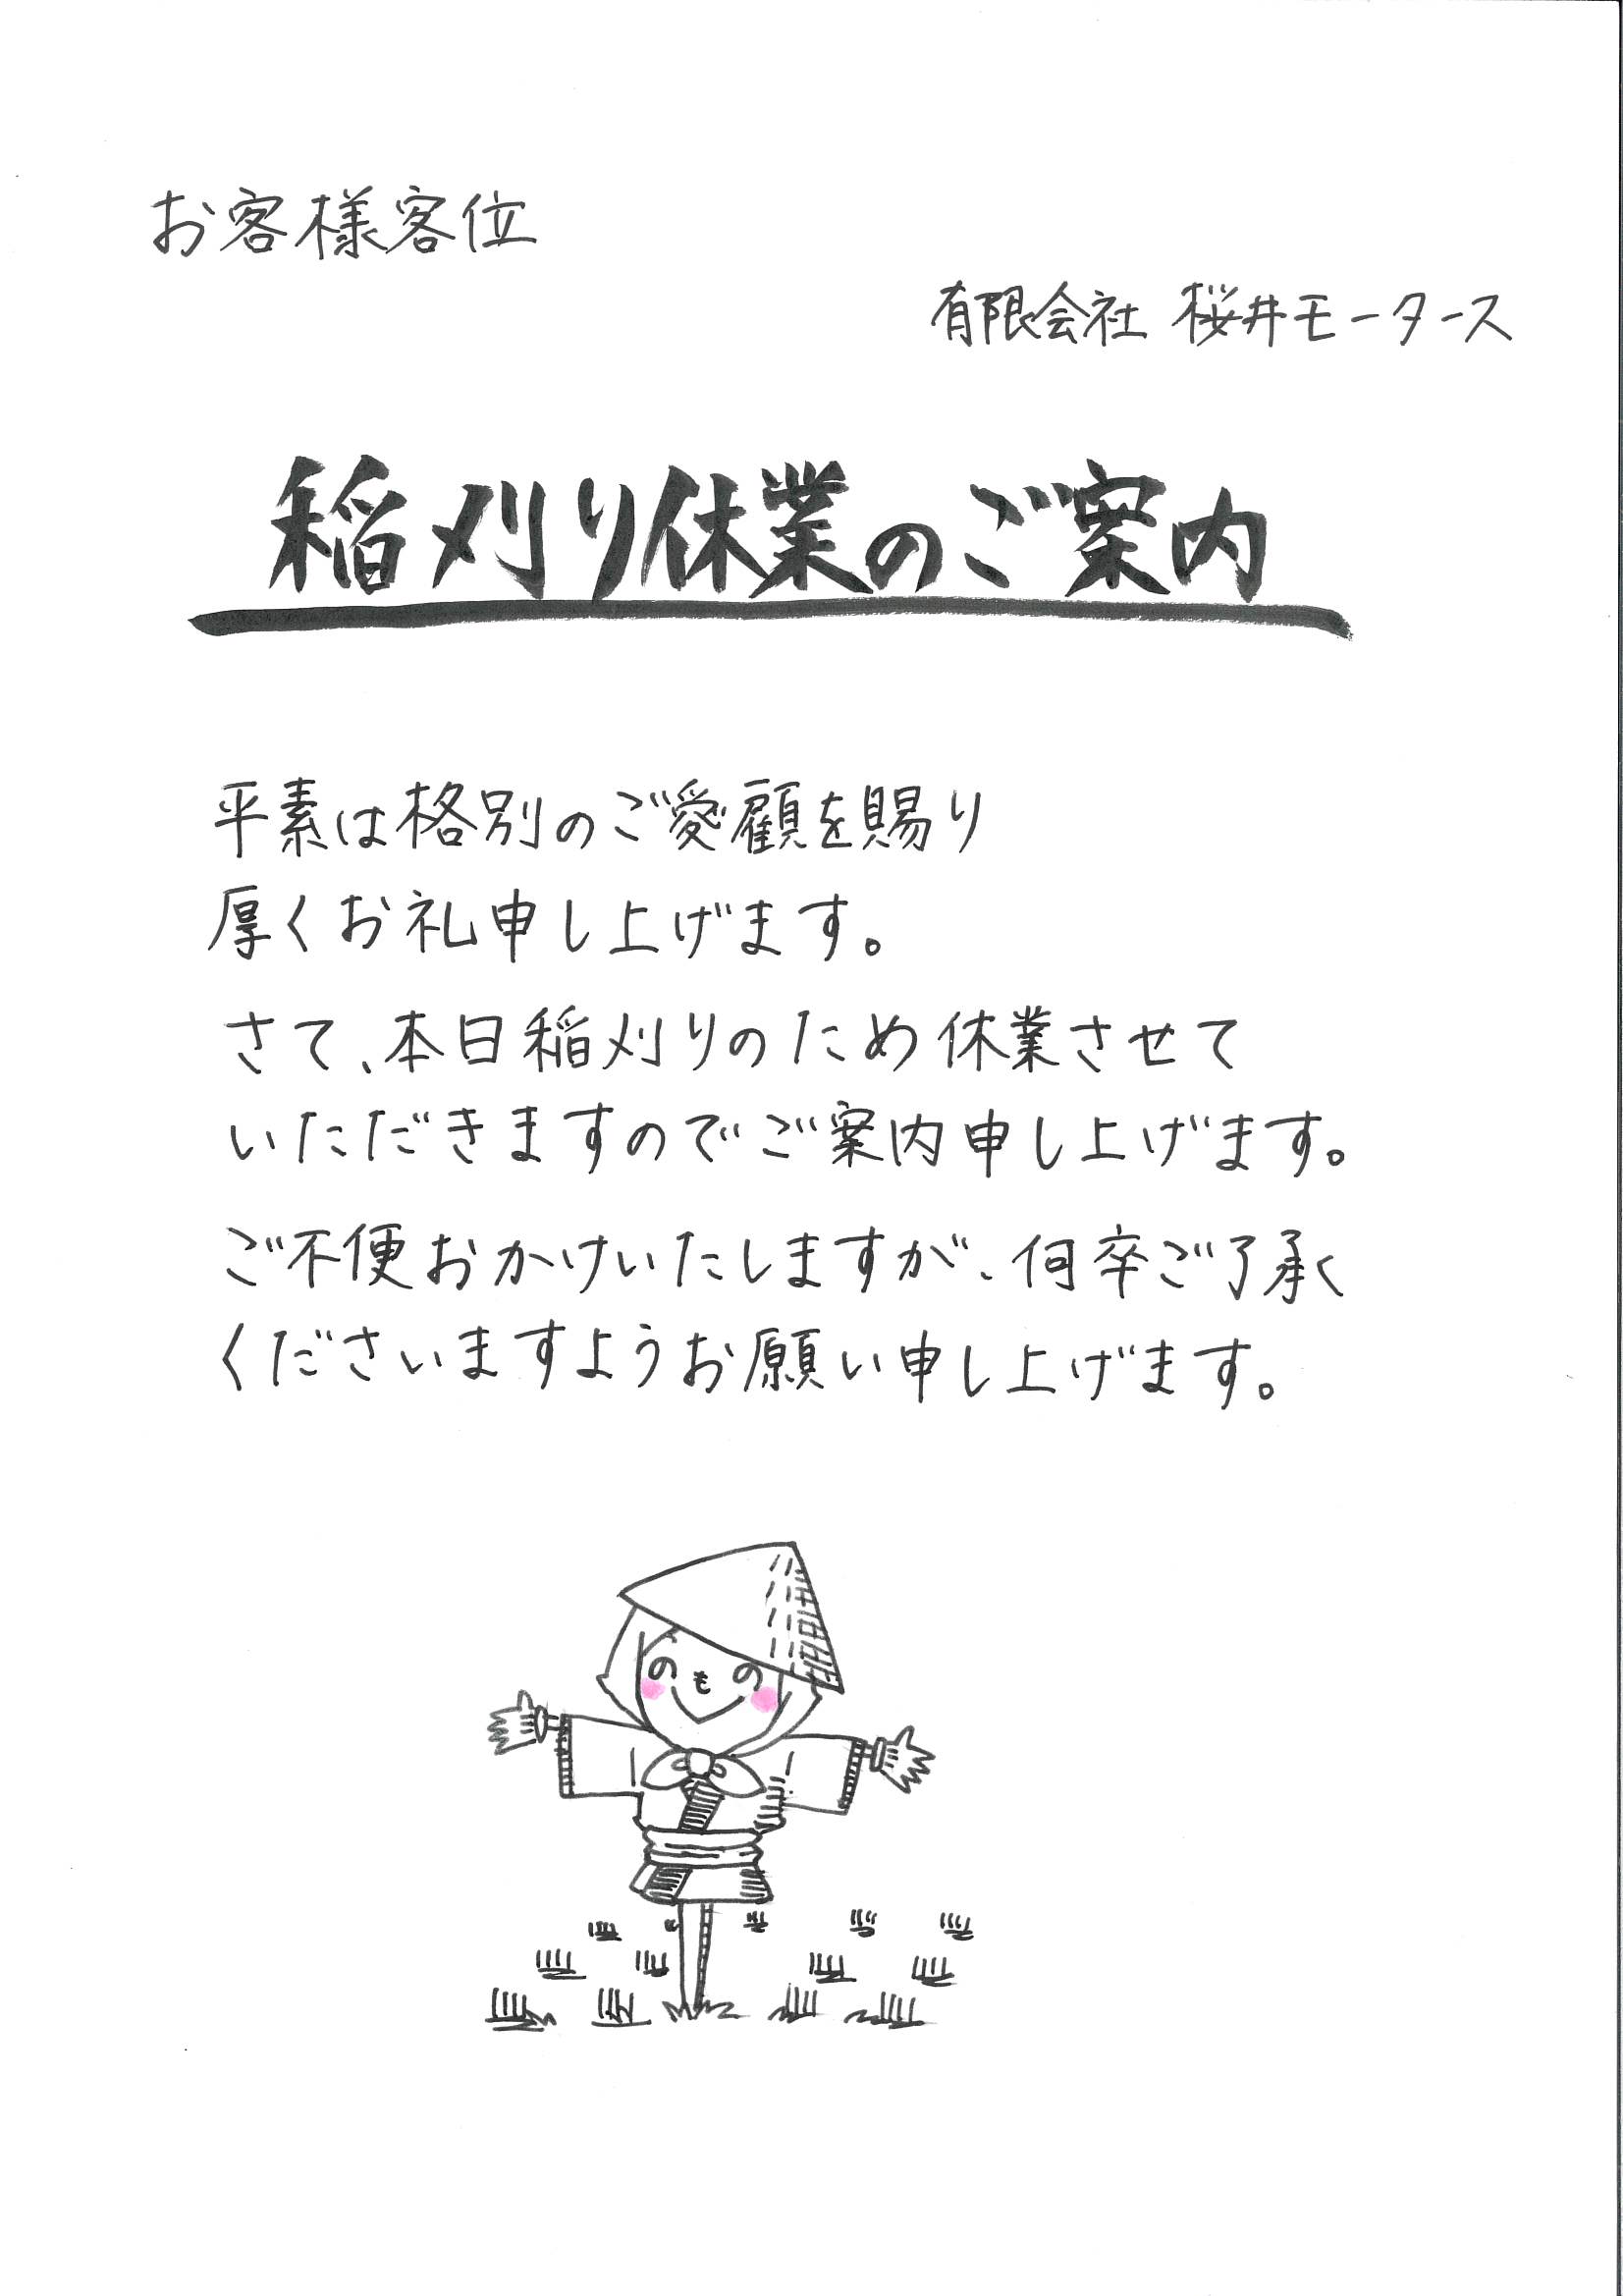 お客様客位
有限会社 桜井モータース
稲刈り休業のご案内
平素は格別のご愛顧を賜り
厚くお礼申し上げます。
さて、本日稲刈りのため休業させて
いただきますのでご案内申し上げます。
ご不便おかけいたしますが、何卒ご了承く
くださいますようお願い申し上げます。
の も の